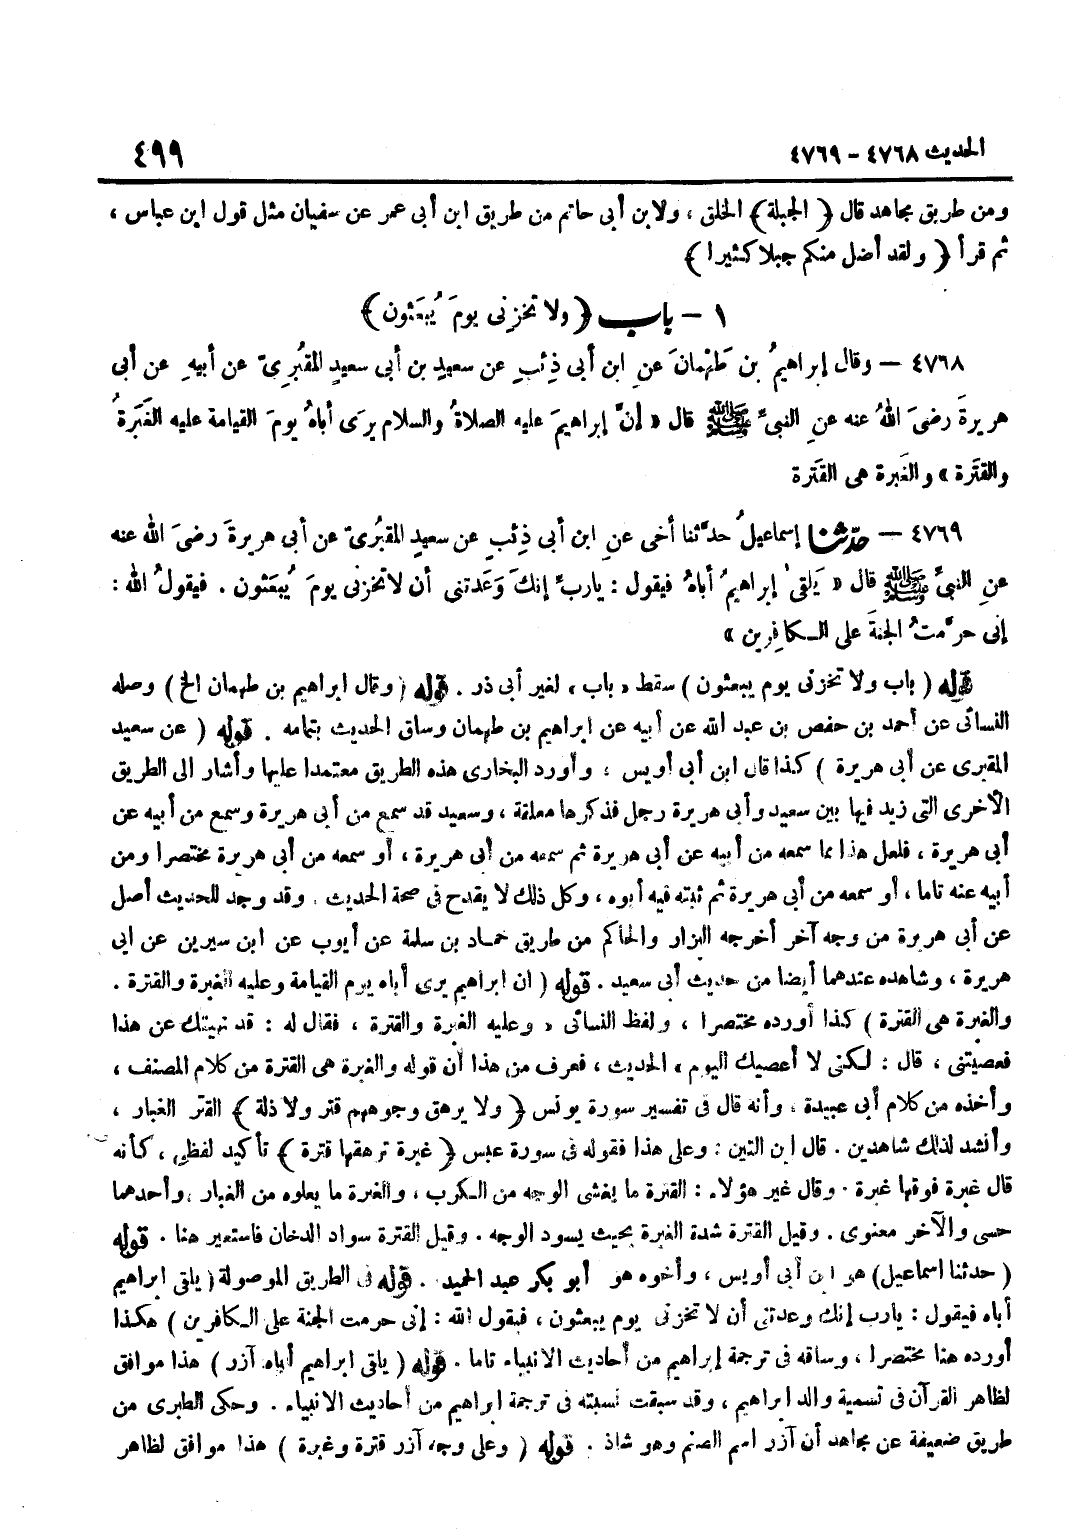 الحديث ٤٧٦٨ - ٤٧٦٩
٤٩٩
ومن طريق مجاهد قال ﴿ الجبلة ﴾ الخلق ، ولابن أبى حاتم من طريق ابن أبى عمر عن سفيان مثل قول ابن عباس ،
ثم قرأ ﴿ ولقد أضل منكم جبلا كثيرا ﴾
١ - باب ﴿ ولا تخزنى يومَ يُبعَثون ﴾
٤٧٦٨ - وقال إبراهيمُ بن طَهْمانَ عنِ ابن أبى ذِئبٍ عن سعيدِ بن أبى سعيدٍ المقبُرِىّ عن أبيهِ عن أبى
هريرةَ رضىَ اللهُ عنه عنِ النبىِّ ﷺ قال « إنَّ إبراهيمَ عليه الصلاةُ والسلام يرَى أباهُ يومَ القيامة عليه الغَبَرةُ
والقتَرة » والغَبرة هى القَترة
٤٧٦٩ - حدّثنا إسماعيلُ حدَّثنا أخى عنِ ابن أبى ذِئبٍ عن سعيدٍ المقبُرىّ عن أبى هريرةَ رضىَ الله عنه
عنِ النبىِّ ﷺ قال « يَلقىٰ إبراهيمُ أباهُ فيقول : ياربِّ إنكَ وَعَدتنى أن لا تخزنى يومَ يُبعَثون . فيقولُ الله :
إنى حرَّمتُ الجنةَ على الكافِرين »
قوله ( باب ولا تخزنى يوم يبعثون ) سقط « باب » لغير أبى ذر . قوله ( وقال ابراهيم بن طهمان الخ ) وصله
النسائى عن أحمد بن حفص بن عبد الله عن أبيه عن ابراهيم بن طهمان وساق الحديث بتمامه . قوله ( عن سعيد
المقبرى عن أبى هريرة ) كذا قال ابن أبى أويس ، وأورد البخارى هذه الطريق معتمدا عليها وأشار الى الطريق
الأخرى التى زيد فيها بين سعيد وأبى هريرة رجل فذكرها معلقة ، وسعيد قد سمع من أبى هريرة وسمع من أبيه عن
أبى هريرة ، فلعل هذا مما سمعه من أبيه عن أبى هريرة ثم سمعه من أبى هريرة ، أو سمعه من أبى هريرة مختصرا ومن
أبيه عنه تاما ، أو سمعه من أبى هريرة ثم ثبته فيه أبوه ، وكل ذلك لا يقدح فى صحة الحديث . وقد وجد للحديث أصل
عن أبى هريرة من وجه آخر أخرجه البزار والحاكم من طريق حماد بن سلمة عن أيوب عن ابن سيرين عن ابى
هريرة ، وشاهده عندهما أيضا من حديث أبى سعيد . قوله ( ان ابراهيم يرى أباه يوم القيامة وعليه الغبرة والقترة .
والغبرة هى القترة ) كذا أورده مختصرا ، ولفظ النسائى « وعليه الغبرة والقترة ، فقال له : قد نهيتك عن هذا
فعصيتنى ، قال : لكنى لا أعصيك اليوم » الحديث ، فعرف من هذا أن قوله والغبرة هى القترة من كلام المصنف ،
وأخذه من كلام أبى عبيدة ، وأنه قال فى تفسير سورة يونس ﴿ ولا يرهق وجوههم قتر ولا ذلة ﴾ القتر الغبار ،
وأنشد لذلك شاهدين . قال ابن التين : وعلى هذا فقوله فى سورة عبس ﴿ غبرة ترهقها قترة ﴾ تأكيد لفظى ، كأنه
قال غبرة فوقها غبرة . وقال غير هؤلاء : القترة ما يغشى الوجه من الكرب ، والغبرة ما يعلوه من الغبار ، وأحدهما
حسى والآخر معنوى . وقيل القترة شدة الغبرة بحيث يسود الوجه . وقيل القترة سواد الدخان فاستعير هنا . قوله
( حدثنا اسماعيل ) هو ابن أبى أويس ، وأخوه هو أبو بكر عبد الحميد . قوله فى الطريق الموصولة ( يلقى ابراهيم
أباه فيقول : يارب إنك وعدتنى أن لا تخزنى يوم يبعثون ، فيقول الله : إنى حرمت الجنة على الكافرين ) هكذا
أورده هنا مختصرا ، وساقه فى ترجمة إبراهيم من أحاديث الانبياء تاما . قوله ( يلقى ابراهيم أباه آزر ) هذا موافق
لظاهر القرآن فى تسمية والد ابراهيم ، وقد سبقت نسبته فى ترجمة ابراهيم من أحاديث الانبياء . وحكى الطبرى من
طريق ضعيفة عن مجاهد أن آزر اسم الصنم وهو شاذ . قوله ( وعلى وجه آزر قترة وغبرة ) هذا موافق لظاهر